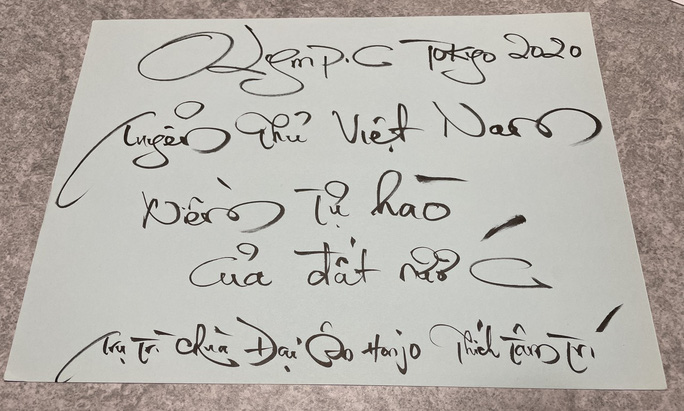 Olympic Tokyo 2020
Tuyển Thủ Việt Nam
Niềm Tự hào
của đất nước
Trụ Trì chùa Đại Ân Honjo Thích Tâm Trí